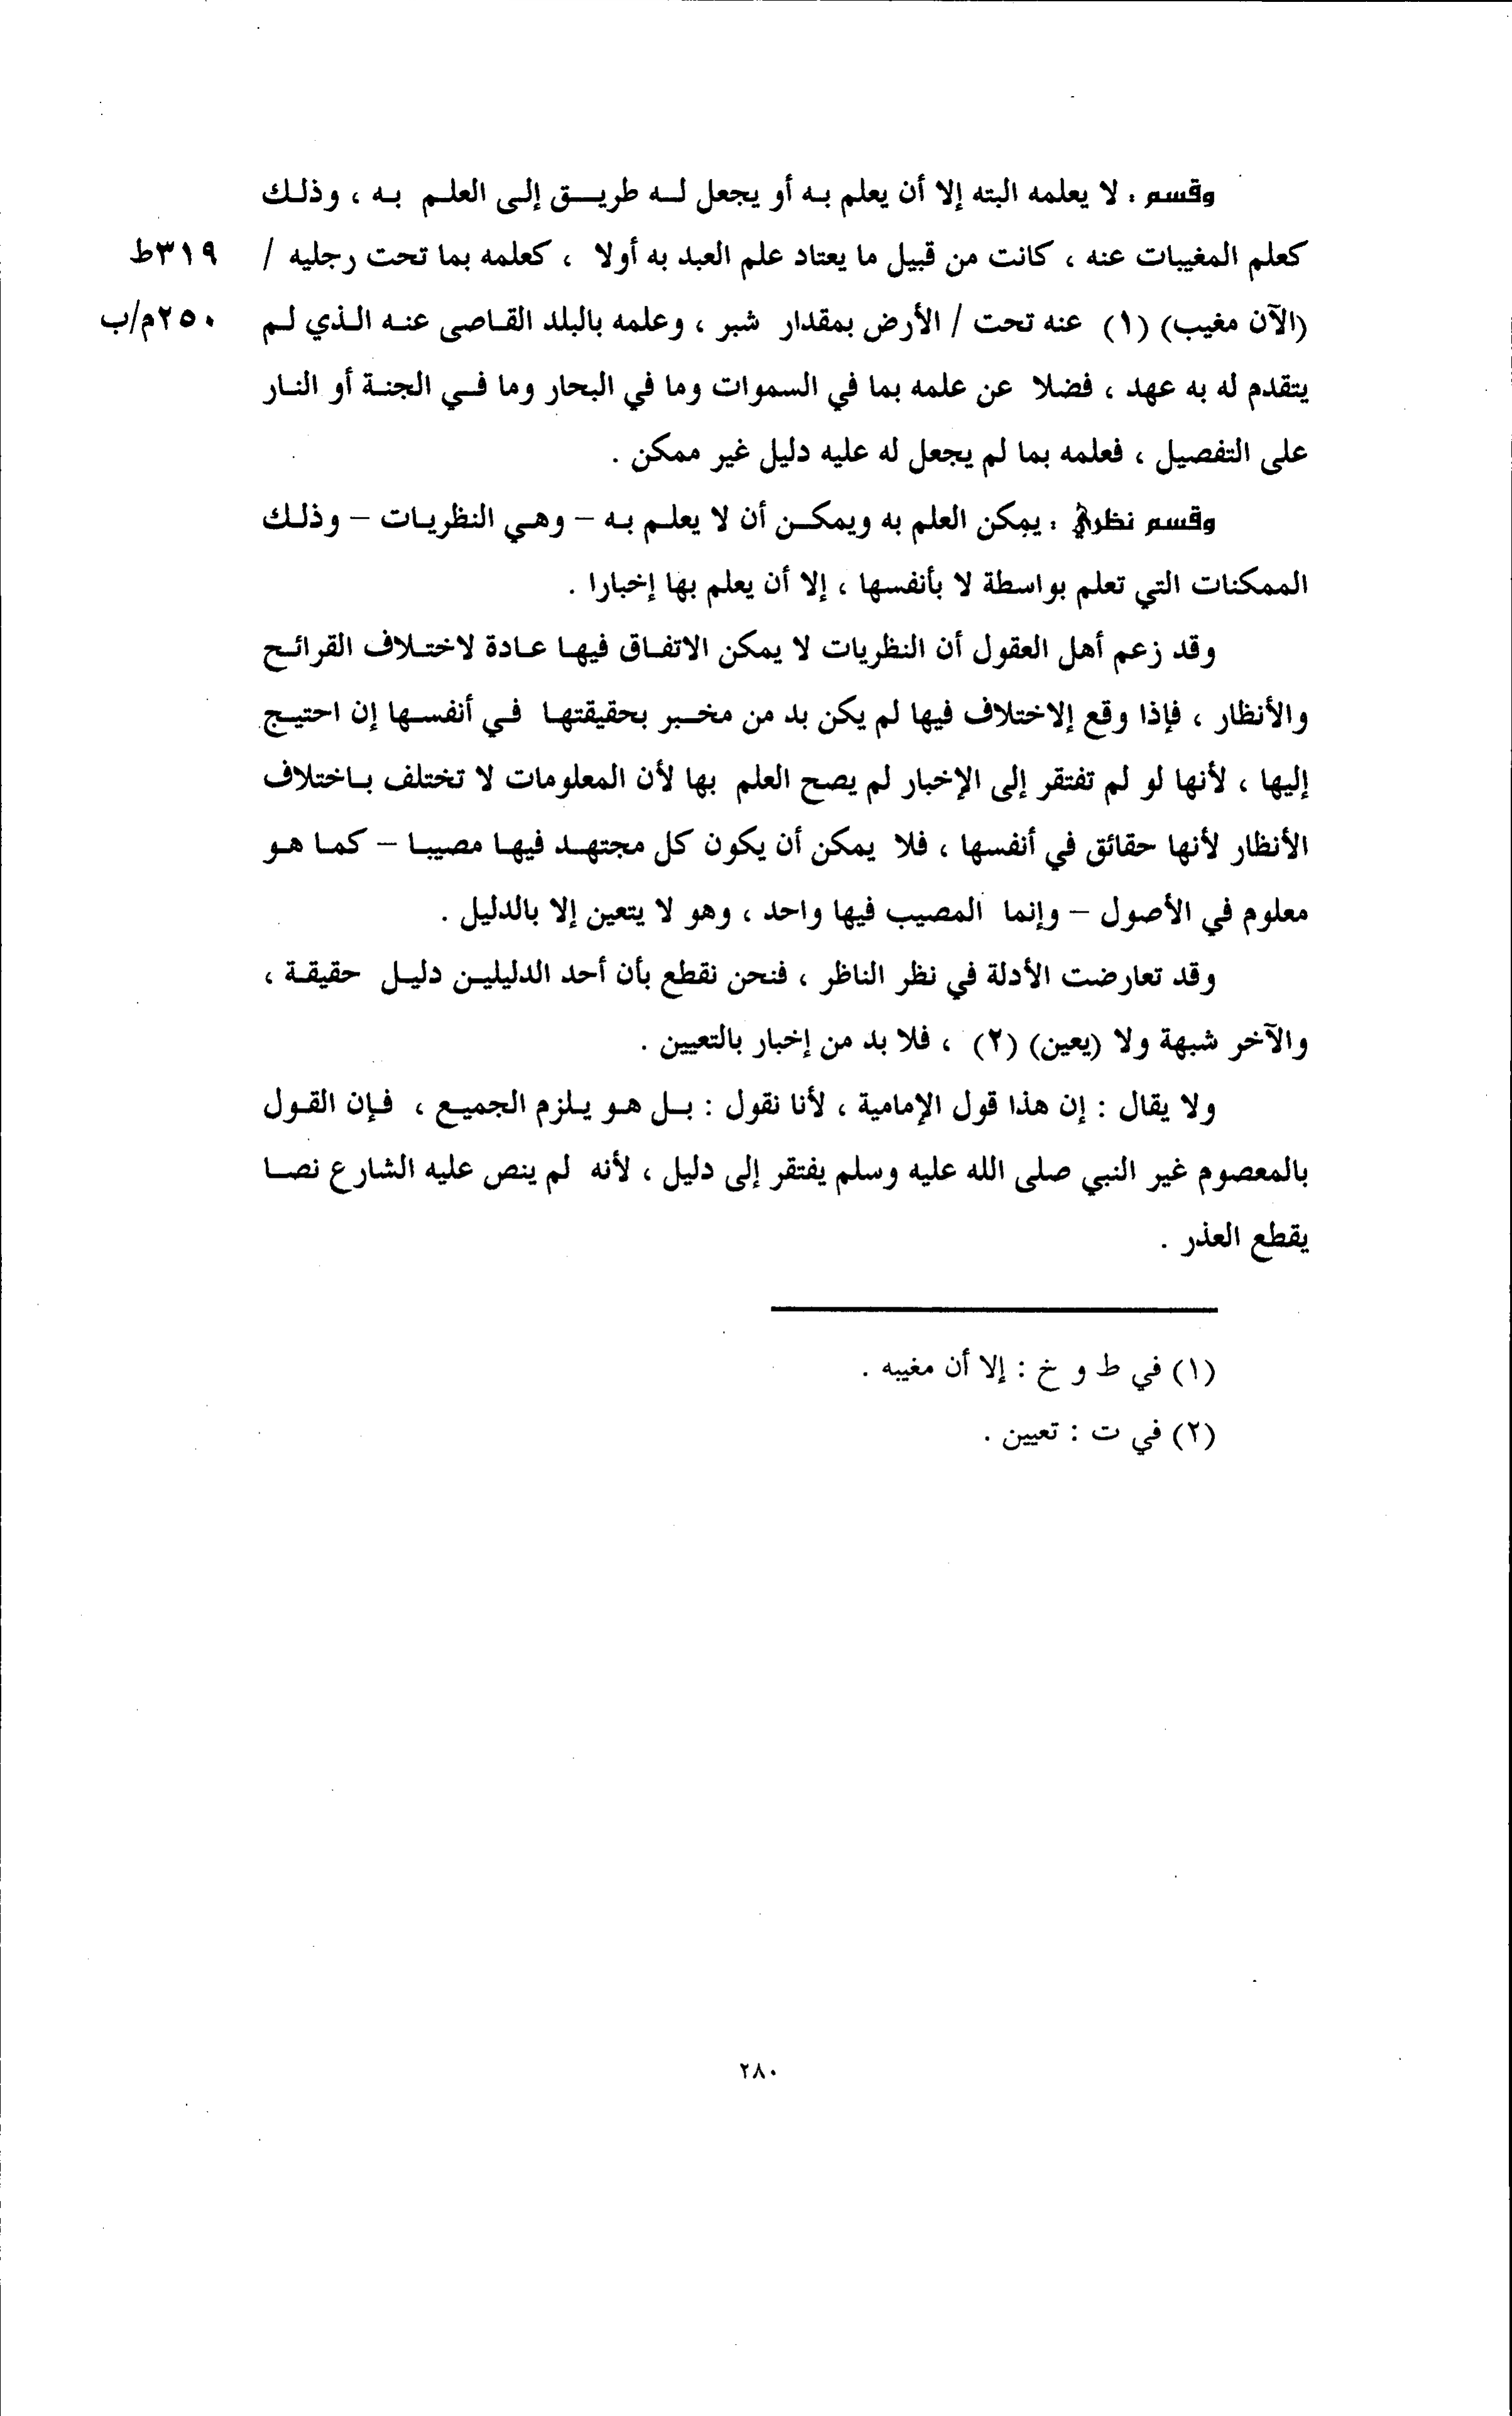 وقسم : لا يعلمه البته إلا أن يعلم به أو يجعل له طريق إلى العلم به ، وذلك
كعلم المغيبات عنه ، كانت من قبيل ما يعتاد علم العبد به أولا ، كعلمه بما تحت رجليه / ٣١٩ط
(الآن مغيب) (١) عنه تحت / الأرض بمقدار شبر ، وعلمه بالبلد القاصى عنه الذي لم ٢٥٠م/ب
يتقدم له به عهد ، فضلا عن علمه بما في السموات وما في البحار وما في الجنة أو النار
على التفصيل ، فعلمه بما لم يجعل له عليه دليل غير ممكن .
وقسم نظري : يمكن العلم به ويمكن أن لا يعلم به – وهي النظريات – وذلك
الممكنات التي تعلم بواسطة لا بأنفسها ، إلا أن يعلم بها إخبارا .
وقد زعم أهل العقول أن النظريات لا يمكن الاتفاق فيها عادة لاختلاف القرائح
والأنظار ، فإذا وقع إلاختلاف فيها لم يكن بد من مخبر بحقيقتها في أنفسها إن احتيج
إليها ، لأنها لو لم تفتقر إلى الإخبار لم يصح العلم بها لأن المعلومات لا تختلف باختلاف
الأنظار لأنها حقائق في أنفسها ، فلا يمكن أن يكون كل مجتهد فيها مصيبا – كما هو
معلوم في الأصول – وإنما المصيب فيها واحد ، وهو لا يتعين إلا بالدليل .
وقد تعارضت الأدلة في نظر الناظر ، فنحن نقطع بأن أحد الدليلين دليل حقيقة ،
والآخر شبهة ولا (يعين) (٢) ، فلا بد من إخبار بالتعيين .
ولا يقال : إن هذا قول الإمامية ، لأنا نقول : بل هو يلزم الجميع ، فإن القول
بالمعصوم غير النبي صلى الله عليه وسلم يفتقر إلى دليل ، لأنه لم ينص عليه الشارع نصا
يقطع العذر .
(١) في ط و خ : إلا أن مغيبه .
(٢) في ت : تعيين .
٢٨٠